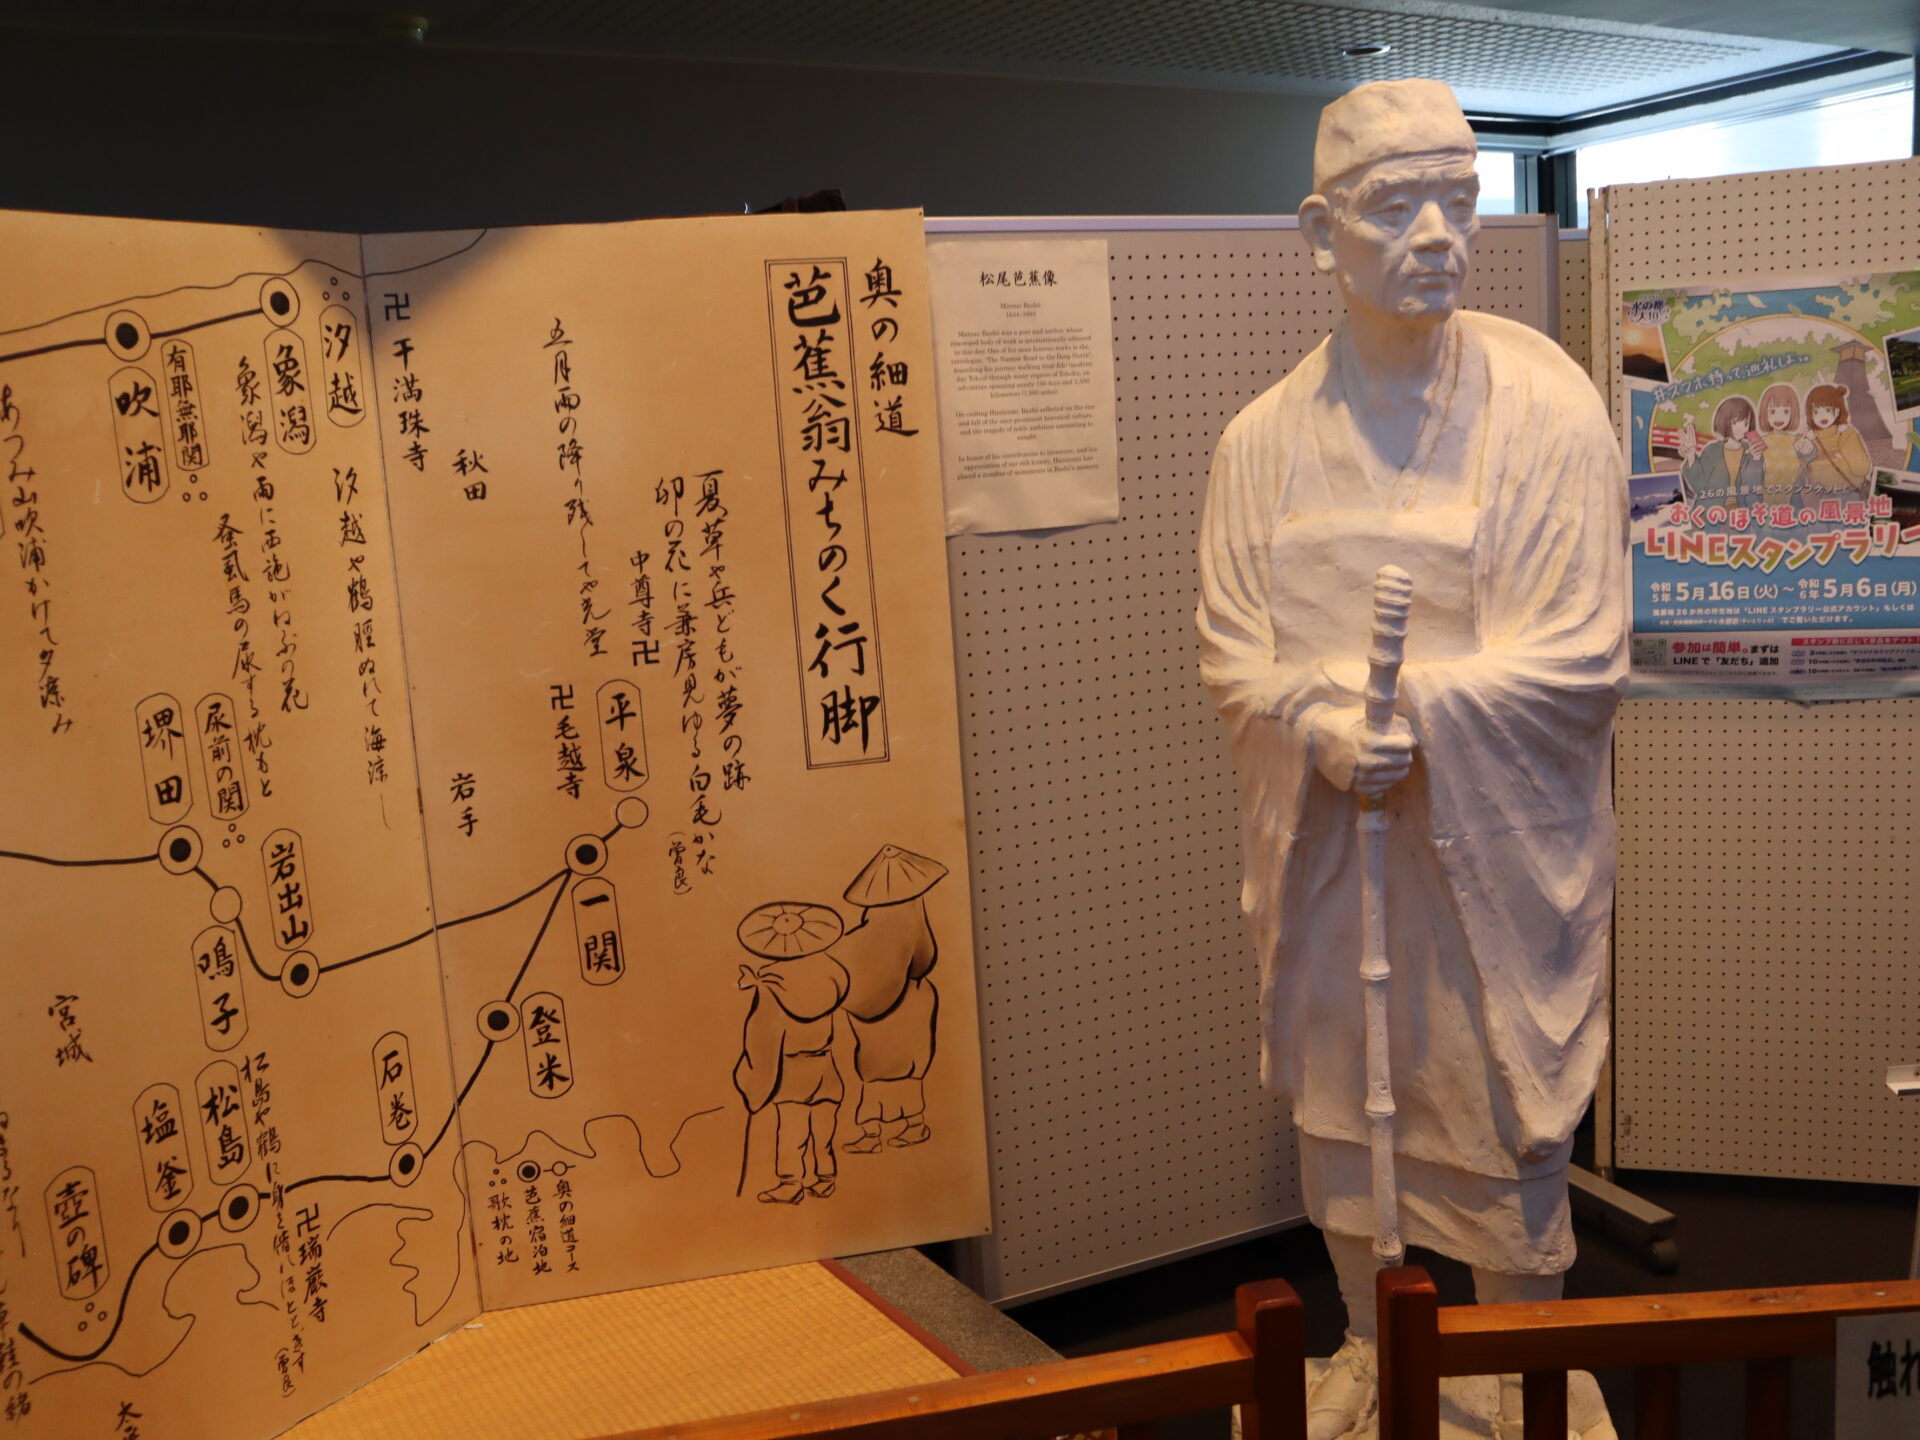 奥の細道
芭蕉翁みちのく行脚
夏草や兵どもが夢の跡
卯の花に兼房見ゆる白毛かな
(曽良)
中尊寺
卍
平泉
五月雨の降り残してや光堂
卍毛越寺
一関
登米
秋田
岩手
卍干満珠寺
汐越
汐越や鶴脛ぬれて海涼し
象潟
象潟や雨に西施がねぶの花
蚤虱馬の尿する枕もと
有耶無耶関
吹浦
あつみ山吹浦かけて夕涼み
尿前の関
堺田
岩出山
鳴子
宮城
石巻
松島
松島や鶴に身を借れほととぎす
(曽良)
卍瑞巌寺
塩釜
壺の碑
奥の細道コース
芭蕉宿泊地
歌枕の地
松尾芭蕉像
Matsuo Bashō
1644-1694
Matsuo Bashō was a poet and author, whose
renowned body of work is internationally admired
to this day. One of his most famous works is the
travelogue, "The Narrow Road to the Deep North",
describing his journey walking from Edo (modern
day Tokyo) through many regions of Tohoku, an
adventure spanning nearly 150 days and 2,500
kilometers (1,500 miles).
On visiting Hiraizumi, Bashō reflected on the rise
and fall of the once prominent historical culture,
and the tragedy of noble ambition amounting to
naught.
In honor of his contributions to literature, and his
appreciation of our rich history, Hiraizumi has
placed a number of monuments in Bashō's memory
水の都
大垣
#スマホ持って、巡礼しよ。
26の風景地でスタンプゲットだ
おくのほそ道の風景地
LINEスタンプラリー
令和5年 5月16日(火)〜令和6年 5月6日(月)
風景地26か所の所在地は「LINEスタンプラリー公式アカウント」もしくは
でご覧いただけます。
参加は簡単。まずは
LINEで「友だち」追加
スタンプ数に応じて景品をゲット
触れ